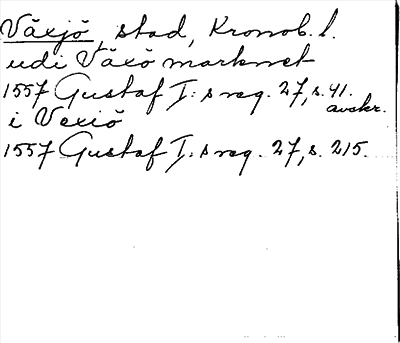 Växjö, stad, Kronob. l.
udi Växö marknet
1557 Gustaf I: s reg. 27, s. 41.
avskr.
i Vexiö
1557 Gustaf I: s reg. 27, s. 215.